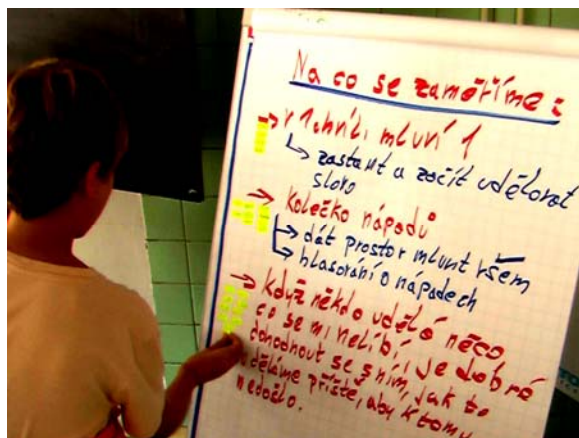 Na co se zaměříme:
→ v 1 chvíli mluví 1
↳ zastavit a začít udělovat
slovo
→ Kolečko nápadů
↳ dát prostor mluvit všem
↳ hlasování o nápadech
→ Když někdo udělá něco,
co se mi nelíbí, je dobré
dohodnout se s ním, jak to
uděláme příště, aby k tomu
nedošlo.